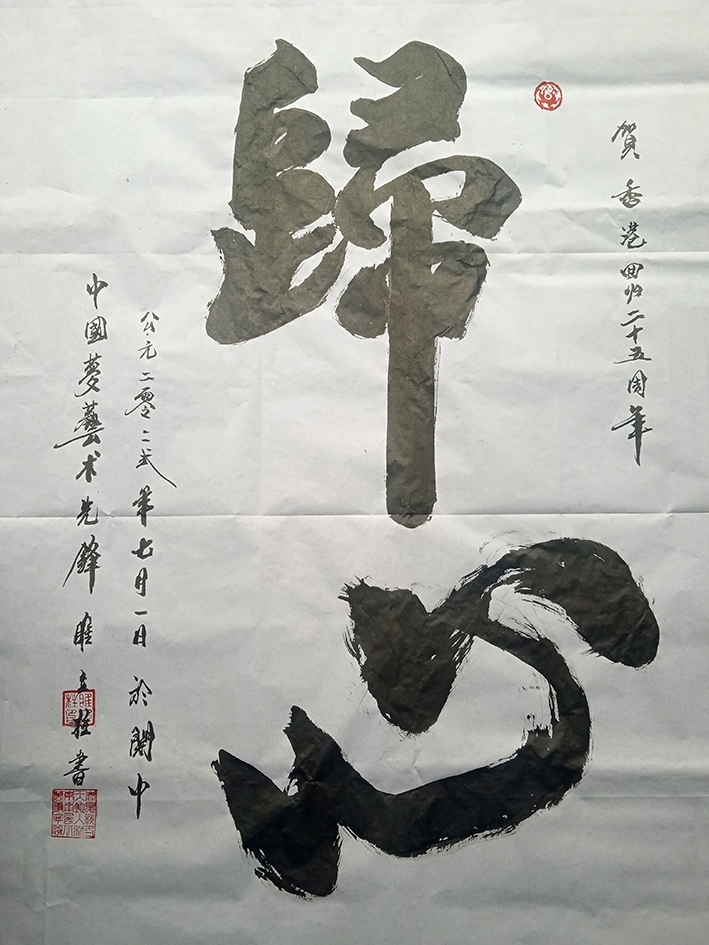 賀香港回归二十五周年
歸心
公元二零二弍年七月一日於閬中
中國夢藝术先鋒睢立柱書